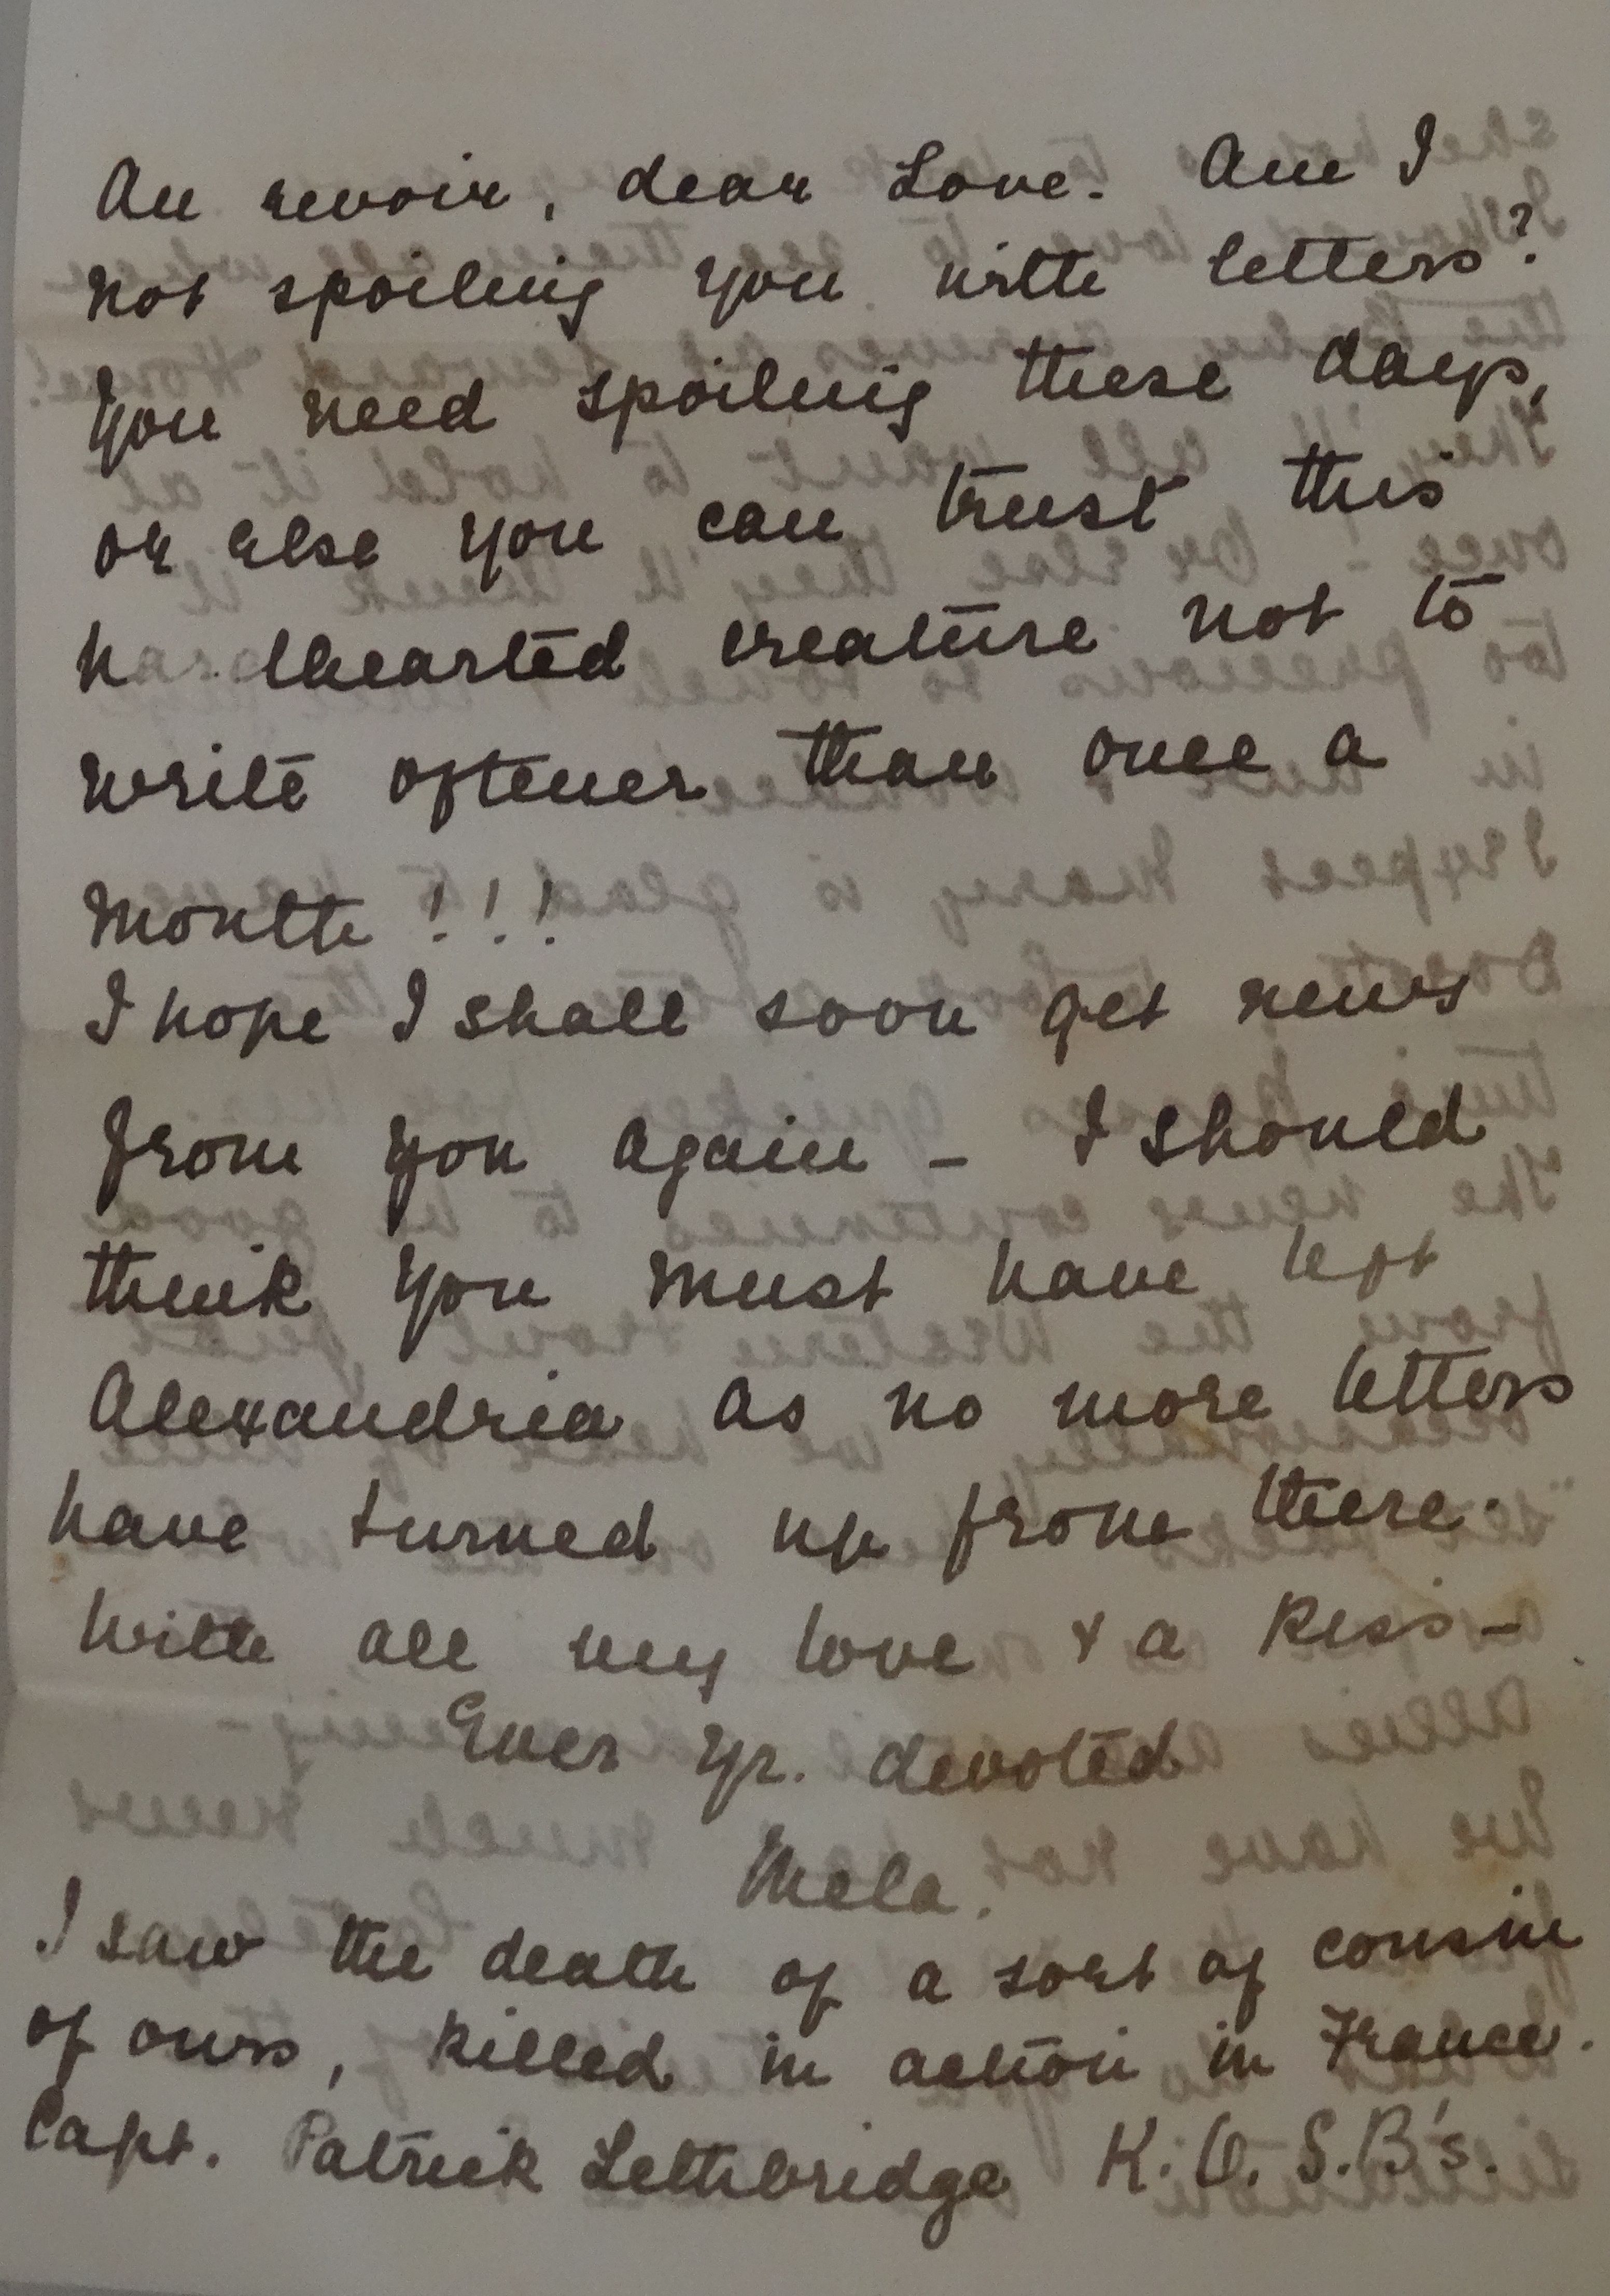 Au revoir, dear Love. Am I
not spoiling you with letters?
You need spoiling these days,
or else you can trust this
hardhearted creature not to
write oftener than once a
month!!!
I hope I shall soon get news
from you again – I should
think you must have left
Alexandria as no more letters
have turned up from there.
With all my love & a kiss –
Ever yr. devoted
Mela.
I saw the death of a sort of cousin
of ours, killed in action in France.
Capt. Patrick Lethbridge K.O.S.B's.